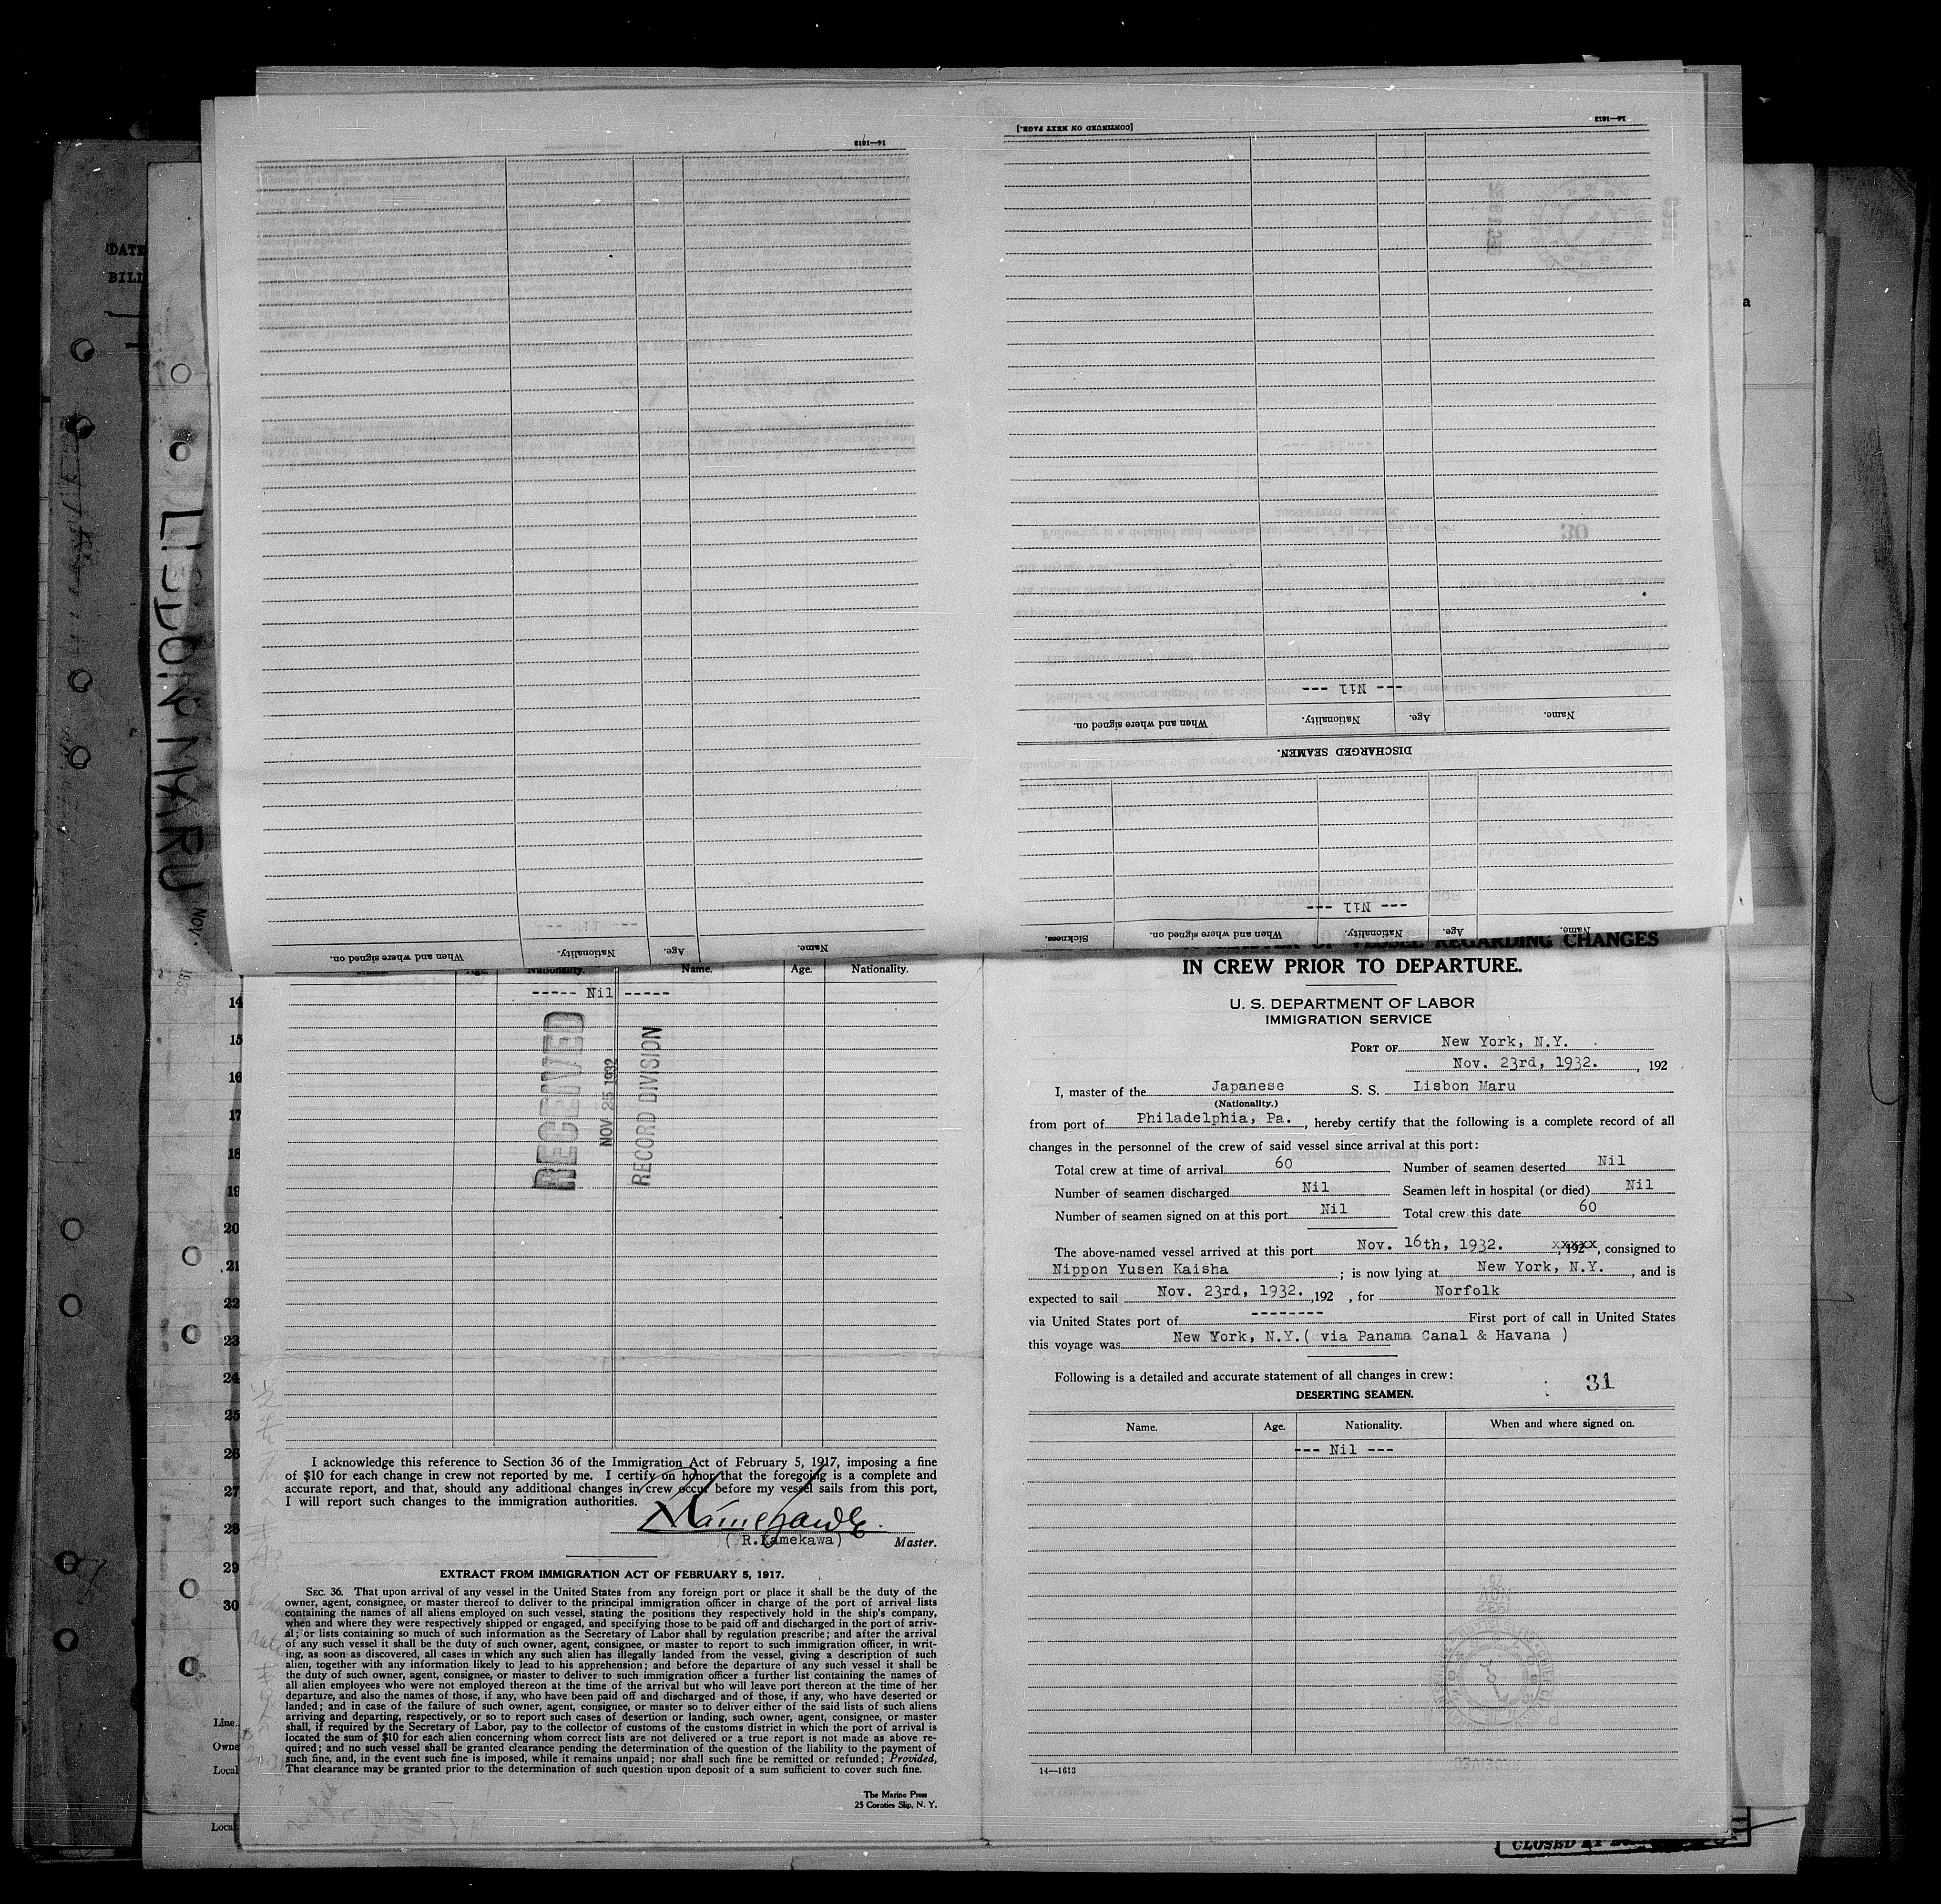 [CONTINUED ON NEXT PAGE.]
14—1613
14—1613
--- Nil ---
When and where signed on.
Nationality.
Age.
Name.
DISCHARGED SEAMEN.
--- Nil ---
Sickness.
When and where signed on.
Nationality.
Age.
Name.
--- Nil ---
When and where signed on.
Nationality.
Age.
Name.
DATE
BILL
LISBON MARU
NOV.
1932
Age.
Nationality.
Name.
Age.
Nationality.
----- Nil -----
14
15
16
17
18
19
20
21
22
23
24
25
26
27
28
29
30
RECEIVED
NOV 25 1932
RECORD DIVISION
I acknowledge this reference to Section 36 of the Immigration Act of February 5, 1917, imposing a fine
of $10 for each change in crew not reported by me. I certify on honor that the foregoing is a complete and
accurate report, and that, should any additional changes in crew occur before my vessel sails from this port,
I will report such changes to the immigration authorities.
Kamekawa
( R.Kamekawa) Master.
EXTRACT FROM IMMIGRATION ACT OF FEBRUARY 5, 1917.
SEC. 36. That upon arrival of any vessel in the United States from any foreign port or place it shall be the duty of the
owner, agent, consignee, or master thereof to deliver to the principal immigration officer in charge of the port of arrival lists
containing the names of all aliens employed on such vessel, stating the positions they respectively hold in the ship's company,
when and where they were respectively shipped or engaged, and specifying those to be paid off and discharged in the port of arriv-
al; or lists containing so much of such information as the Secretary of Labor shall by regulation prescribe; and after the arrival
of any such vessel it shall be the duty of such owner, agent, consignee, or master to report to such immigration officer, in writ-
ing, as soon as discovered, all cases in which any such alien has illegally landed from the vessel, giving a description of such
alien, together with any information likely to lead to his apprehension; and before the departure of any such vessel it shall be
the duty of such owner, agent, consignee, or master to deliver to such immigration officer a further list containing the names of
all alien employees who were not employed thereon at the time of the arrival but who will leave port thereon at the time of her
departure, and also the names of those, if any, who have been paid off and discharged and of those, if any, who have deserted or
landed; and in case of the failure of such owner, agent, consignee, or master so to deliver either of the said lists of such aliens
arriving and departing, respectively, or so to report such cases of desertion or landing, such owner, agent, consignee, or master
shall, if required by the Secretary of Labor, pay to the collector of customs of the customs district in which the port of arrival is
located the sum of $10 for each alien concerning whom correct lists are not delivered or a true report is not made as above re-
quired; and no such vessel shall be granted clearance pending the determination of the question of the liability to the payment of
such fine, and, in the event such fine is imposed, while it remains unpaid; nor shall such fine be remitted or refunded; Provided,
That clearance may be granted prior to the determination of such question upon deposit of a sum sufficient to cover such fine.
The Marine Press
25 Coenties Slip, N. Y.
Line.
Owne
Local
Local
OF VESSEL REGARDING CHANGES
IN CREW PRIOR TO DEPARTURE.
U. S. DEPARTMENT OF LABOR
IMMIGRATION SERVICE
PORT OF New York, N.Y.
Nov. 23rd, 1932. , 192
I, master of the Japanese S. S. Lisbon Maru
(Nationality.)
from port of Philadelphia, Pa. , hereby certify that the following is a complete record of all
changes in the personnel of the crew of said vessel since arrival at this port:
Total crew at time of arrival 60 Number of seamen deserted Nil
Number of seamen discharged Nil Seamen left in hospital (or died) Nil
Number of seamen signed on at this port Nil Total crew this date 60
The above-named vessel arrived at this port Nov. 16th, 1932. , 192 xxxxx, consigned to
Nippon Yusen Kaisha ; is now lying at New York, N.Y. , and is
expected to sail Nov. 23rd, 1932. ,192 , for Norfolk
via United States port of -------- First port of call in United States
this voyage was New York, N.Y.( via Panama Canal & Havana )
Following is a detailed and accurate statement of all changes in crew:
31
DESERTING SEAMEN.
Name.
Age.
Nationality.
When and where signed on.
--- Nil ---
14—1613
CLOSED AT